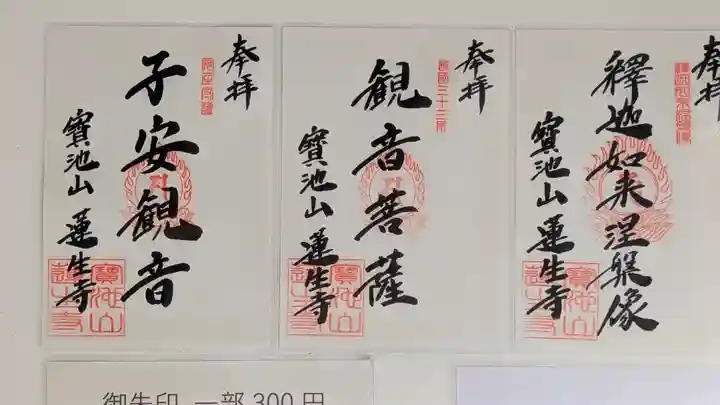 奉拝
子安観音
寶池山 蓮生寺
奉拝
観音菩薩
寶池山 蓮生寺
奉拝
釋迦如来涅槃像
寶池山 蓮生寺
御朱印 一部 300 円